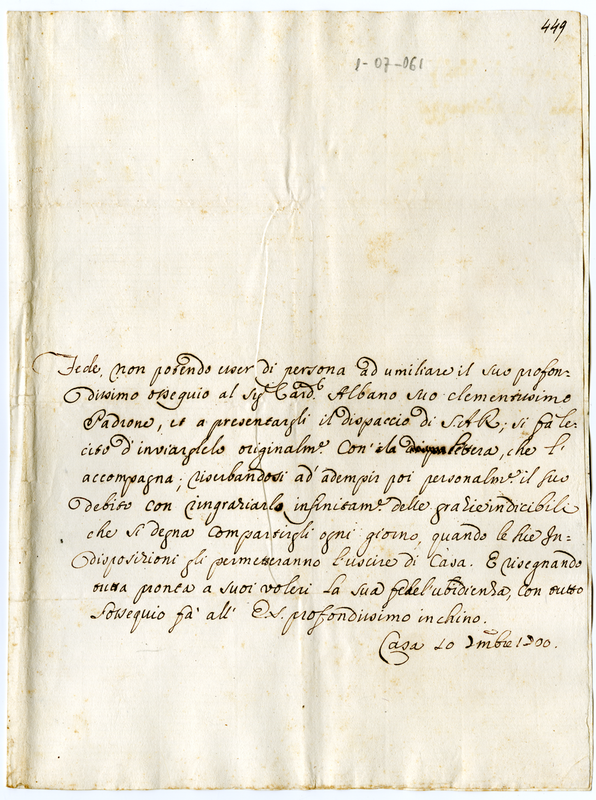 449
1-07-061
Fede, non potendo esser di persona ad umiliare il suo profon=
dissimo ossequio al Sig.r Card. Albano suo clementissimo
Padrone, et a presentargli il dispaccio di S.A.R.; si fà le=
cito d'inviarglielo originalm.e con la lettera, che l'
accompagna; riserbandosi ad adempir poi personalm.e il suo
debito con ringraziarlo infinitam.e delle grazie indicibili
che si degna compartirgli ogni giorno, quando le sue In=
disposizioni gli permetteranno l'uscire di Casa. E risegnando
tutta pronta a suoi voleri la sua fedel'ubidienza, con tutto
l'ossequio fà all' E.S. profondissimo inchino.
Casa 10 mbre 1700.